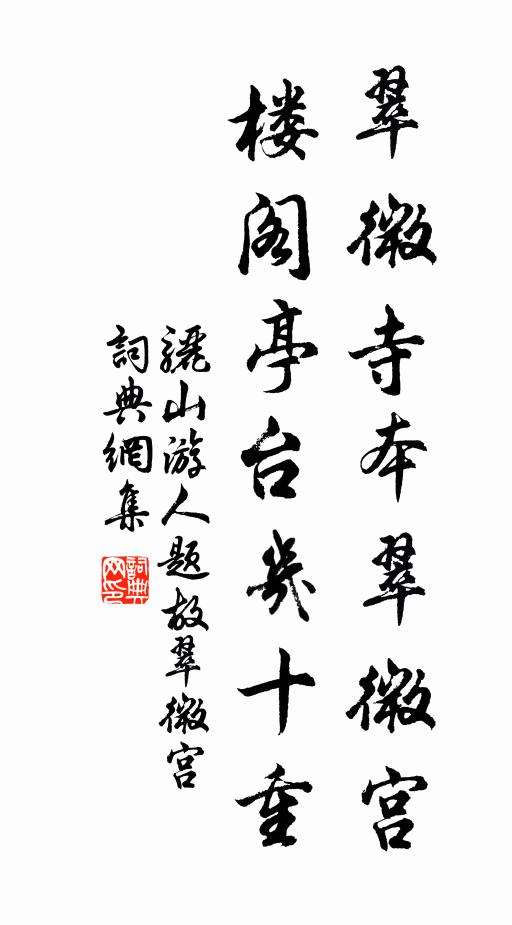 翠微寺本翠微宫
楼阁亭台几十重
骊山游人题故翠微宫
詞典網集
詞典
网印